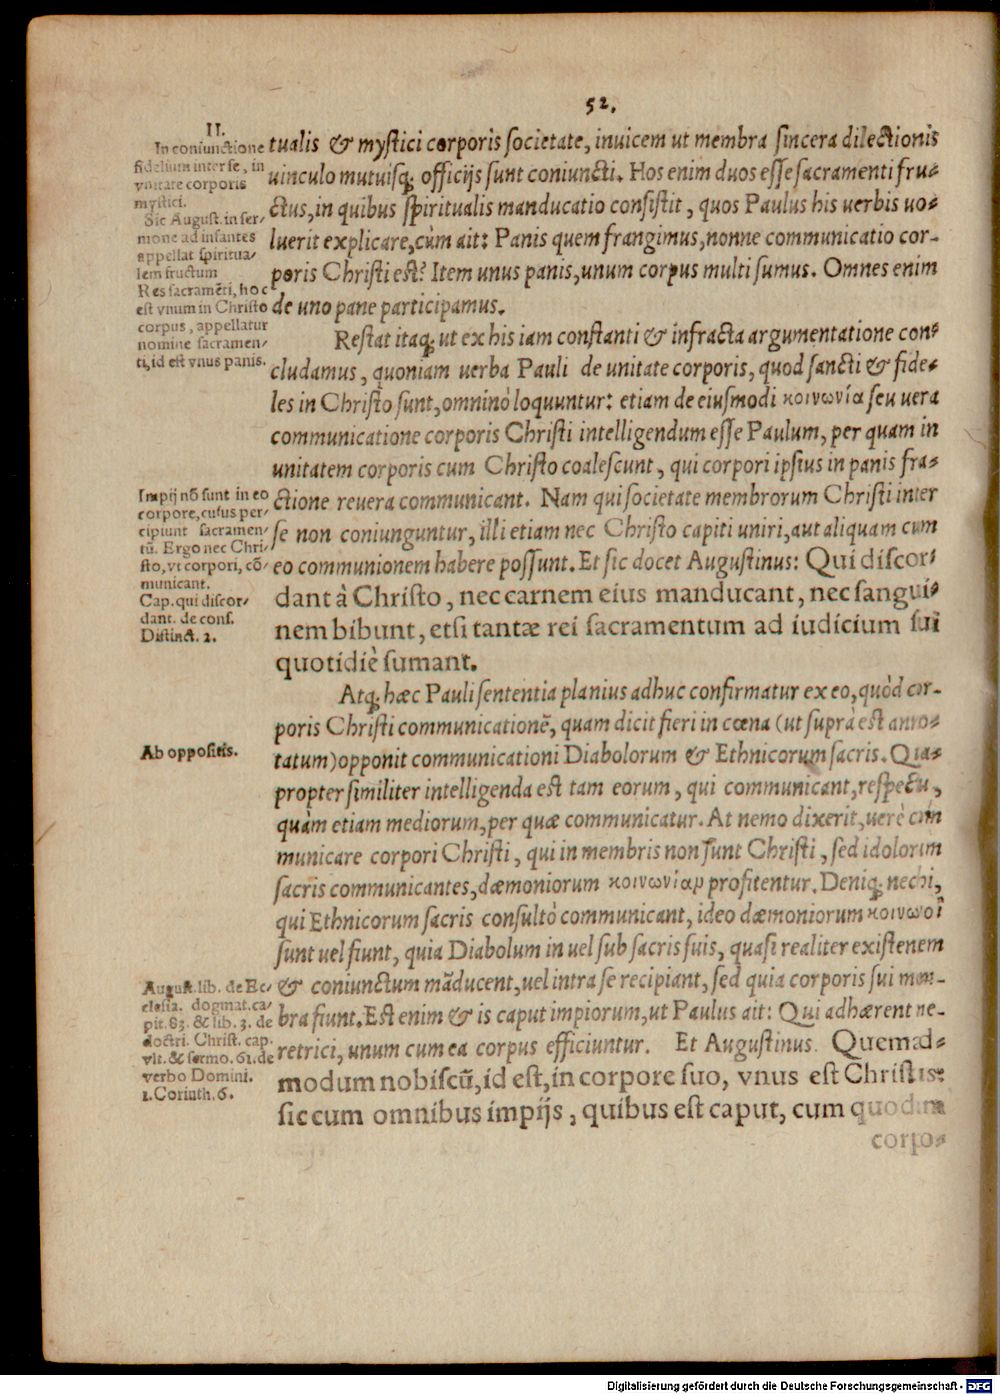 52.
II.
In coniunctione
fidelium inter se, in
vnitate corporis
mystici.
Sic August. in ser⸗
mone ad infantes
appellat spiritua⸗
lem fructum
Res sacramēti, hoc
est vnum in Christo
corpus, appellatur
nomine sacramen⸗
ti, id est vnus panis.
tualis & mystici corporis societate, inuicem ut membra sincera dilectionis
uinculo mutuisq; officijs sunt coniuncti. Hos enim duos esse sacramenti fru⸗
ctus, in quibus spiritualis manducatio consistit, quos Paulus his uerbis uo⸗
luerit explicare, cùm ait: Panis quem frangimus, nonne communicatio cor⸗
poris Christi est? Item unus panis, unum corpus multi sumus. Omnes enim
de uno pane participamus.
Restat itaq; ut ex his iam constanti & infracta argumentatione con⸗
cludamus, quoniam uerba Pauli de unitate corporis, quod sancti & fide⸗
les in Christo sunt, omninò loquuntur: etiam de eiusmodi κοινωνία seu uera
communicatione corporis Christi intelligendum esse Paulum, per quam in
unitatem corporis cum Christo coalescunt, qui corpori ipsius in panis fra⸗
Impij nō sunt in eo
corpore, cuius per⸗
cipiunt sacramen⸗
tū. Ergo nec Chri⸗
sto, vt corpori, cō⸗
municant.
Cap. qui discor⸗
dant. de cons.
Distinct. 2.
ctione reuera communicant. Nam qui societate membrorum Christi inter
se non coniunguntur, illi etiam nec Christo capiti uniri, aut aliquam cum
eo communionem habere possunt. Et sic docet Augustinus: Qui discor⸗
dant à Christo, nec carnem eius manducant, nec sangui⸗
nem bibunt, etsi tantæ rei sacramentum ad iudicium sui
quotidiè sumant.
Atq; hæc Pauli sententia planius adhuc confirmatur ex eo, quòd cor⸗
poris Christi communicationē, quam dicit fieri in cœna (ut suprà est anno⸗
Ab oppositis.
tatum) opponit communicationi Diabolorum & Ethnicorum sacris. Qua⸗
propter similiter intelligenda est tam eorum, qui communicant, respectu,
quàm etiam mediorum, per quæ communicatur. At nemo dixerit, uerè com
municare corpori Christi, qui in membris non sunt Christi, sed idolorum
sacris communicantes, dæmoniorum κοινωνίαν profitentur. Deniq; nec hi,
qui Ethnicorum sacris consultò communicant, ideo dæmoniorum κοινωνοὶ
sunt uel fiunt, quia Diabolum in uel sub sacris suis, quasi realiter existenem
August. lib. de Ec⸗
clesia. dogmat. ca⸗
pit. 83. & lib. 3. de
doctri. Christ. cap.
vlt. & sermo. 61. de
verbo Domini.
1. Corinth. 6.
& coniunctum māducent, uel intra se recipiant, sed quia corporis sui mem⸗
bra fiunt. Est enim & is caput impiorum, ut Paulus ait: Qui adhærent me⸗
retrici, unum cum ea corpus efficiuntur. Et Augustinus. Quemad⸗
modum nobiscū, id est, in corpore suo, vnus est Christus:
sic cum omnibus impijs, quibus est caput, cum quodam
corpo⸗
Digitalisierung gefördert durch die Deutsche Forschungsgemeinschaft - DFG